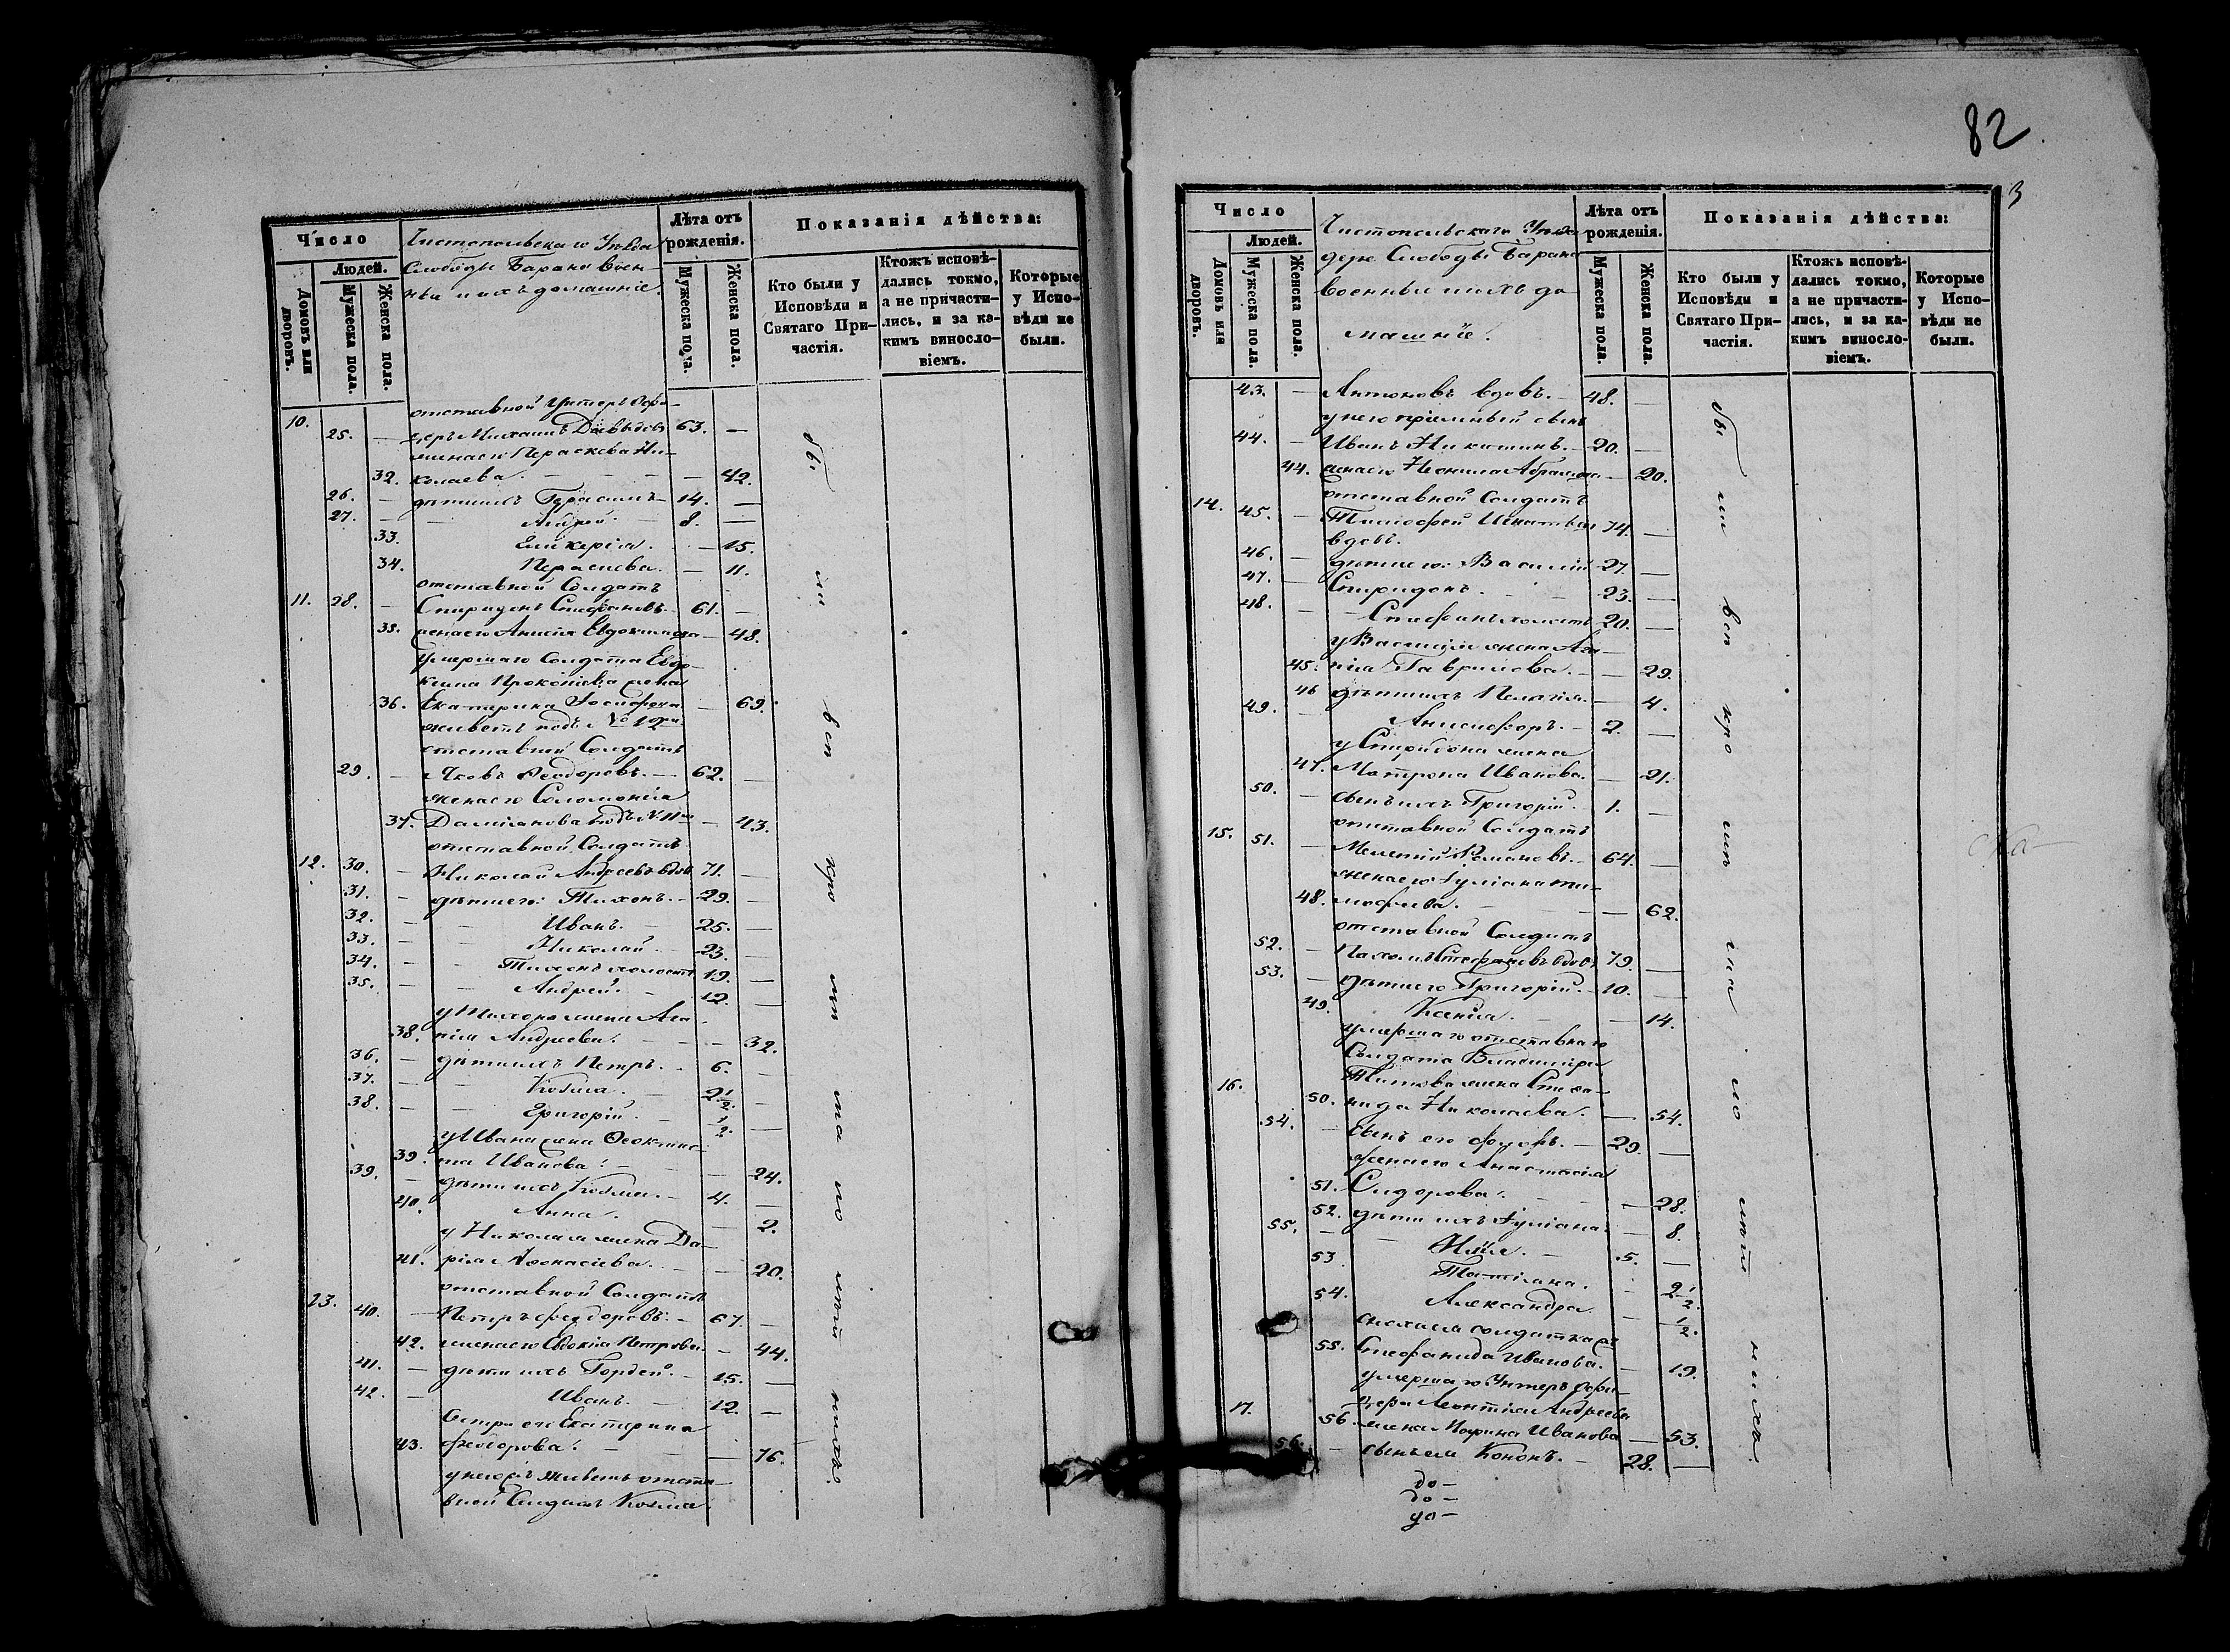 Число
Людей.
Домовъ или дворовъ.
Мужеска пола.
Женска пола.
Чистопольскаго Уѣзда
Слободы Барана Воен-
ныи и ихъ домашніе.
Лѣта отъ рожденія.
Мужеска пола.
Женска пола.
Показанія дѣйства:
Кто были у Исповѣди и Святаго При-частія.
Ктожъ исповѣ-дались токмо, а не причасти-лись, и за ка-кимъ виносло-віемъ.
Которые у Испо-вѣди не были.
отставной Унтеръ Офи-
10. 25. — церъ Михаилъ Давыдовъ 63. —
жена его Параскева Ни-
32. колаева. — — 42.
26. — дѣти ихъ Герасимъ — 14. —
27. — Андрей. — 8. —
33. Гликерія. — 15.
34. Параскева. — 11.
отставной Солдатъ
11. 28. — Спиридонъ Стефановъ. 61. —
35. жена его Анисія Евдокимова — 48.
умершаго Солдата Евдо-
кима Прокопіева жена
36. Екатерина — 69.
живетъ подъ № 12мъ
отставной Солдатъ
29. — Яковъ Ѳеодоровъ. — 62. —
жена его Соломонія
37. Даміанова подъ № 11мъ — 43.
отставной Солдатъ
12. 30. — Николай Андреевъ вдов. 71. —
31. — дѣти его: Тихонъ. — 29. —
32. — Иванъ. — 25. —
33. — Николай. — 23. —
34. — Тихонъ холостъ 19. —
35. — Андрей. — 12. —
у Тихона жена Ага-
38. пія Андреева. — — 32.
36. — дѣти ихъ Петръ. — 6. —
37. — Козма. — 2 1/2. —
38. — Григорій. — 1/2. —
у Ивана жена Ѳеоктис-
39. та Иванова. — — 24.
39. — дѣти ихъ Козма. — 4. —
40. Анна. — 2.
у Николая жена Да-
41. рія Аѳонасіева. — — 20.
отставной Солдатъ
13. 40. — Петръ Ѳеодоровъ. — 67. —
42. жена его Евдокія Петрова. — 44.
41. — дѣти ихъ Гордей. — 15. —
42. — Иванъ. — 12. —
Сестра его Екатерина
43. Ѳеодорова. — — 76.
у него жъ живетъ отста-
вной Солдатъ Козма
бы ли всѣ кро мѣ ма ло лѣт нихъ.
82
3
Число
Людей.
Домовъ или дворовъ.
Мужеска пола.
Женска пола.
Чистопольскаго Уѣзда
Слободы Барана
военныи и ихъ до-
машніе.
Лѣта отъ рожденія.
Мужеска пола.
Женска пола.
Показанія дѣйства:
Кто были у Исповѣди и Святаго При-частія.
Ктожъ исповѣ-дались токмо, а не причасти-лись, и за ка-кимъ виносло-віемъ.
Которые у Испо-вѣди не были.
43. — Антоновъ вдовъ. — 48. —
у него пріемный сынъ
44. — Иванъ Никитинъ. — 20. —
44. жена его Неонила Абрамова — 20.
отставной Солдатъ
14. 45. — Тимофей Игнатьевъ 74. —
вдовъ.
46. — дѣти его: Василій 27. —
47. — Спиридонъ. — 23. —
48. — Стефанъ холостъ 20. —
у Василія жена Ага-
45. пія Гаврилова. — — 29.
46 дѣти ихъ Пелагія. — 4.
49. — Анисифоръ. — 2. —
у Спиридона жена
47. Матрона Иванова. — 21.
50. — сынъ ихъ Григорій. 1. —
отставной Солдатъ
15. 51. — Мелетій Романовъ. — 64. —
жена его Іуліана Ти-
48. мофеева. — — 62.
отставной Солдатъ
52. — Пахомъ Стефановъ вдовъ 79. —
53. — дѣти его Григорій. — 10. —
49. Ксенія. — — 14.
умершаго отставнаго
Солдата Владиміра
16. Титова жена Степа-
50. нида Николаева. — 54.
54. — сынъ его — 29. —
жена его Анастасія
51. Сидорова. — — 28.
52. дѣти ихъ Іуліана. — 8.
55. — Илія. — 5. —
53 Татіана. — 2 1/2.
54. Александра. — 1/2.
сноха ея солдатка
55. Стефанида Иванова. — 19.
умершаго Унтеръ Офи-
17. цера Леонтія Андреева
56. жена Марина Иванова — 53.
56. — сынъ ея Кононъ. — 28. —
до —
до —
до —
бы ли всѣ кро мѣ ма ло лѣт нихъ.